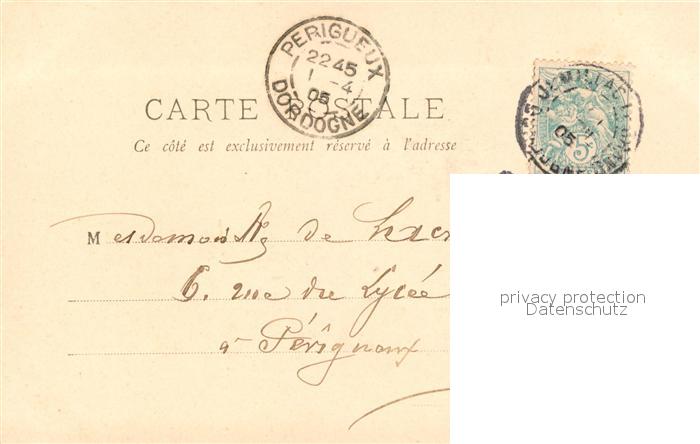 PERIGUEUX
2245
1 -4
05
DORDOGNE
CARTE POSTALE
Ce côté est exclusivement réservé à l'adresse
05
5
Mesdemoiselles de
6. rue du Lycée
à Périgueux
privacy protection
Datenschutz